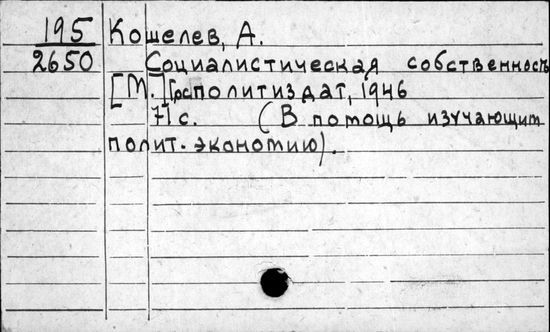 195 Кошелев, А.
2650 Социалистическая собственность
[М.] Госполитиздат, 1946
71 с. (В помощь изучающим
полит. экономию).